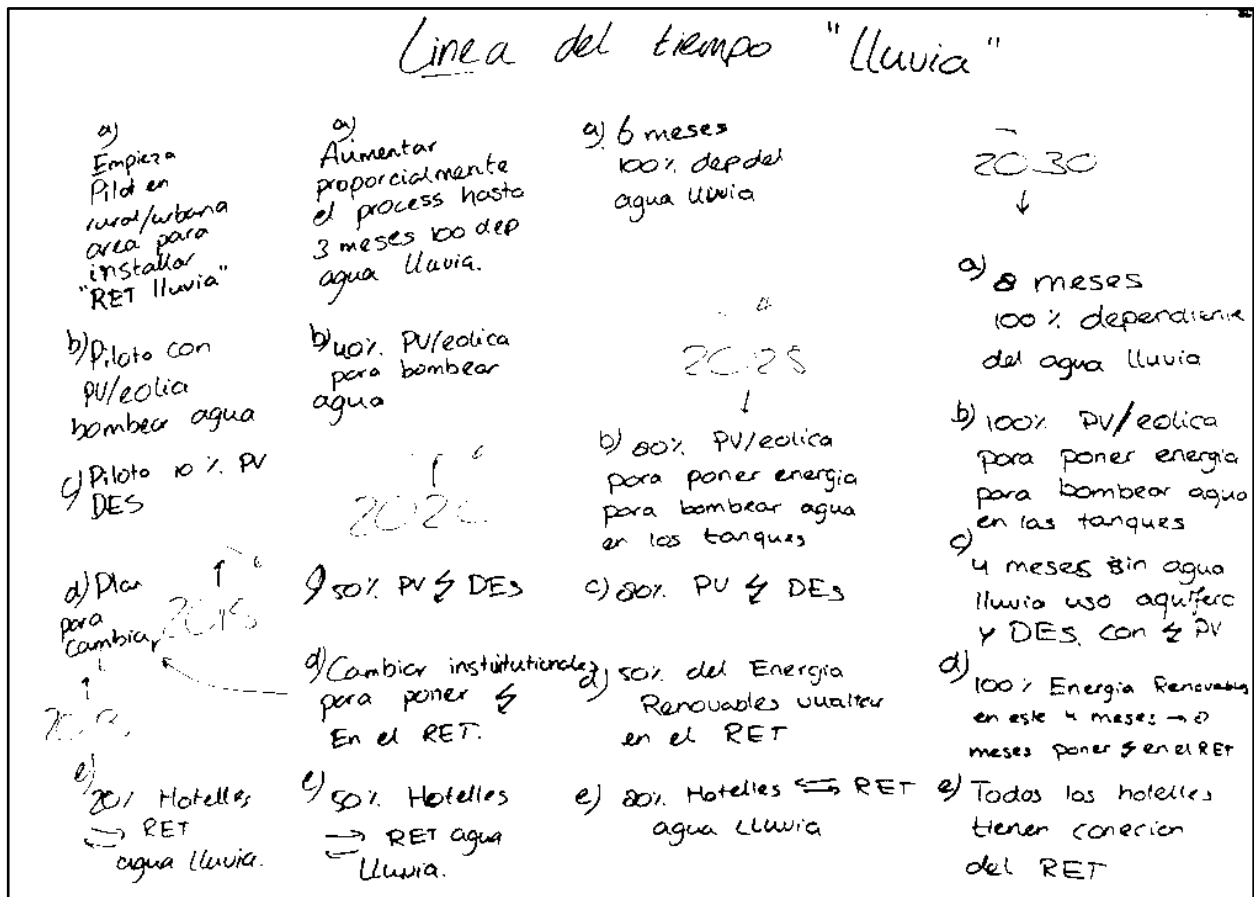 Linea del tiempo "lluvia"
a)
Empieza
Pilot en
rural/urbana
area para
installar
"RET lluvia"
b) Piloto con
PV/eolia
bombear agua
c) Piloto 10 % PV
DES
d) Plan
para
Cambiar
2015
e)
20% Hotelles
⇄ RET
agua lluvia.
a)
Aumentar
proporcialmente
el process hasta
3 meses 100 dep
agua lluvia.
b) 40% PV/eolica
para bombear
agua
2020
c) 50% PV ↯ DEs
d) Cambiar instituitionales
para poner ↯
En el RET.
e) 50% Hotelles
⇄ RET agua
lluvia.
a) 6 meses
100% dep del
agua lluvia
2025
↓
b) 80% PV/eolica
para poner energia
para bombear agua
en los tanques
c) 80% PV ↯ DEs
d) 50% del Energia
Renovables vualter
en el RET
e) 80% Hotelles ⇆ RET
agua lluvia
2030
↓
a) 8 meses
100 % dependiente
del agua lluvia
b) 100% PV/eolica
para poner energia
para bombear agua
en las tanques
c)
4 meses sin agua
lluvia uso aquifero
y DEs con ↯ PV
d)
100% Energia Renovables
en este 4 meses → 8
meses poner ↯ en el RET
e) Todos los holelles
tienen conecion
del RET